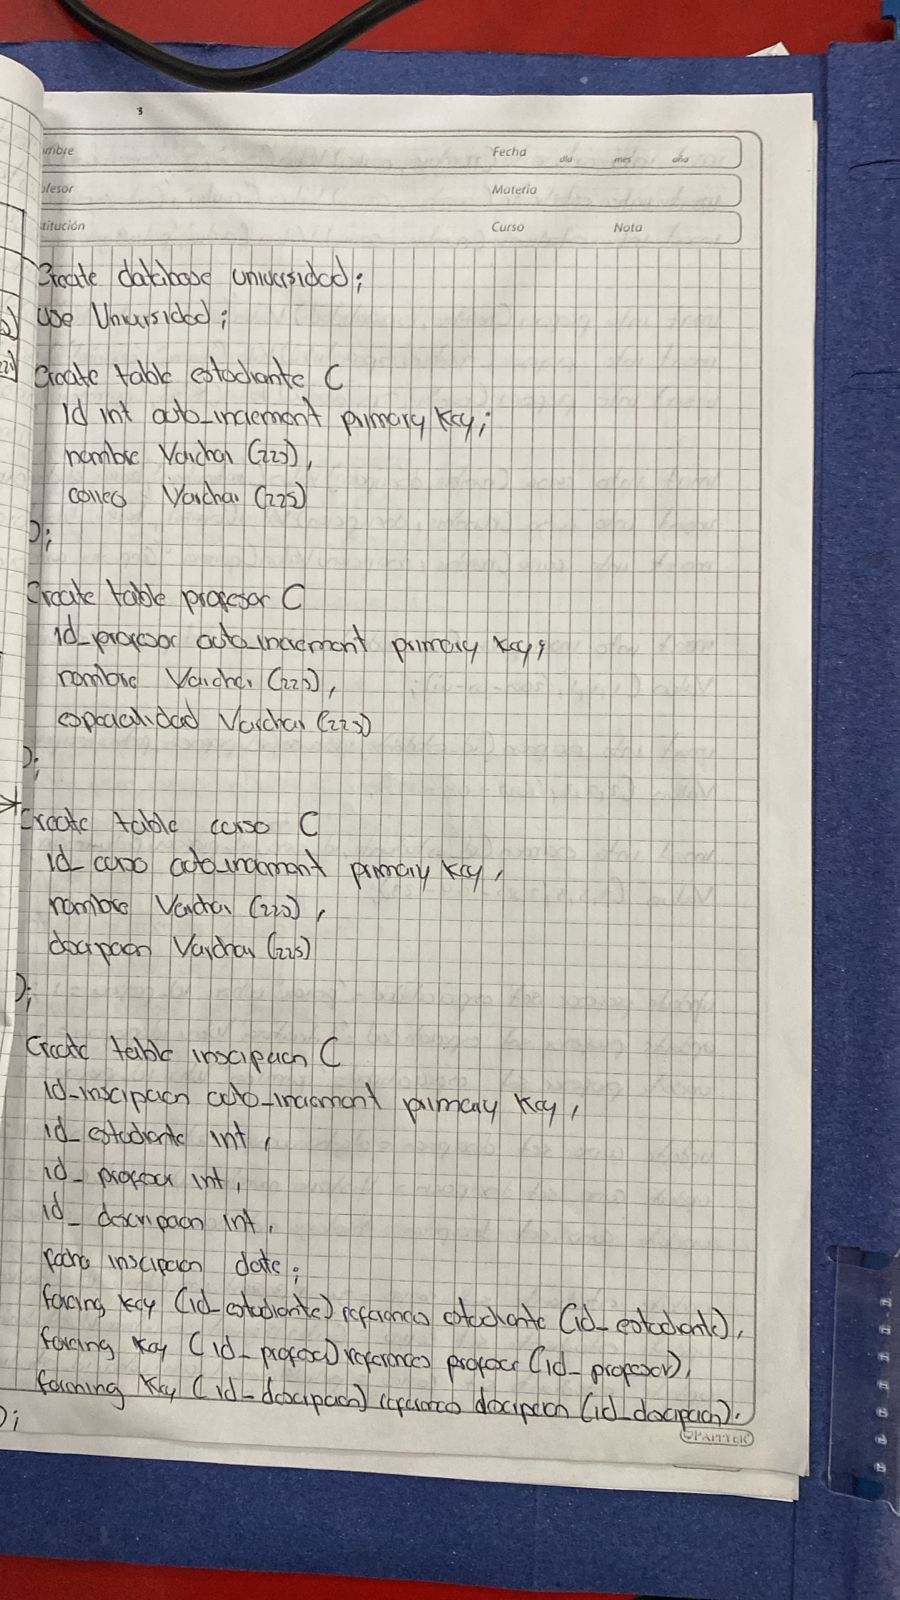 3
mbre Fecha día mes año
ofesor Materia
titución Curso Nota
Create database universidad;
Use Universidad;
Create table estudiante (
Id int auto_increment primary key;
nombre Varchar (225),
correo Varchar (225)
);
Create table profesor (
id_profesor auto_increment primary key;
nombre Varchar (225),
especialidad Varchar (225)
);
Create table curso (
id_curso auto_increment primary key,
nombre Varchar (225),
descripcion Varchar (225)
);
Create table inscripcion (
id_inscripcion auto_increment primary key,
id_estudiante int,
id_profesor int,
id_descripcion int,
fecha inscripcion date;
key (id_estudiante) references estudiante (id_estudiante),
key (id_profesor) references profesor (id_profesor),
key (id_descripcion) references descripcion (id_descripcion).
);